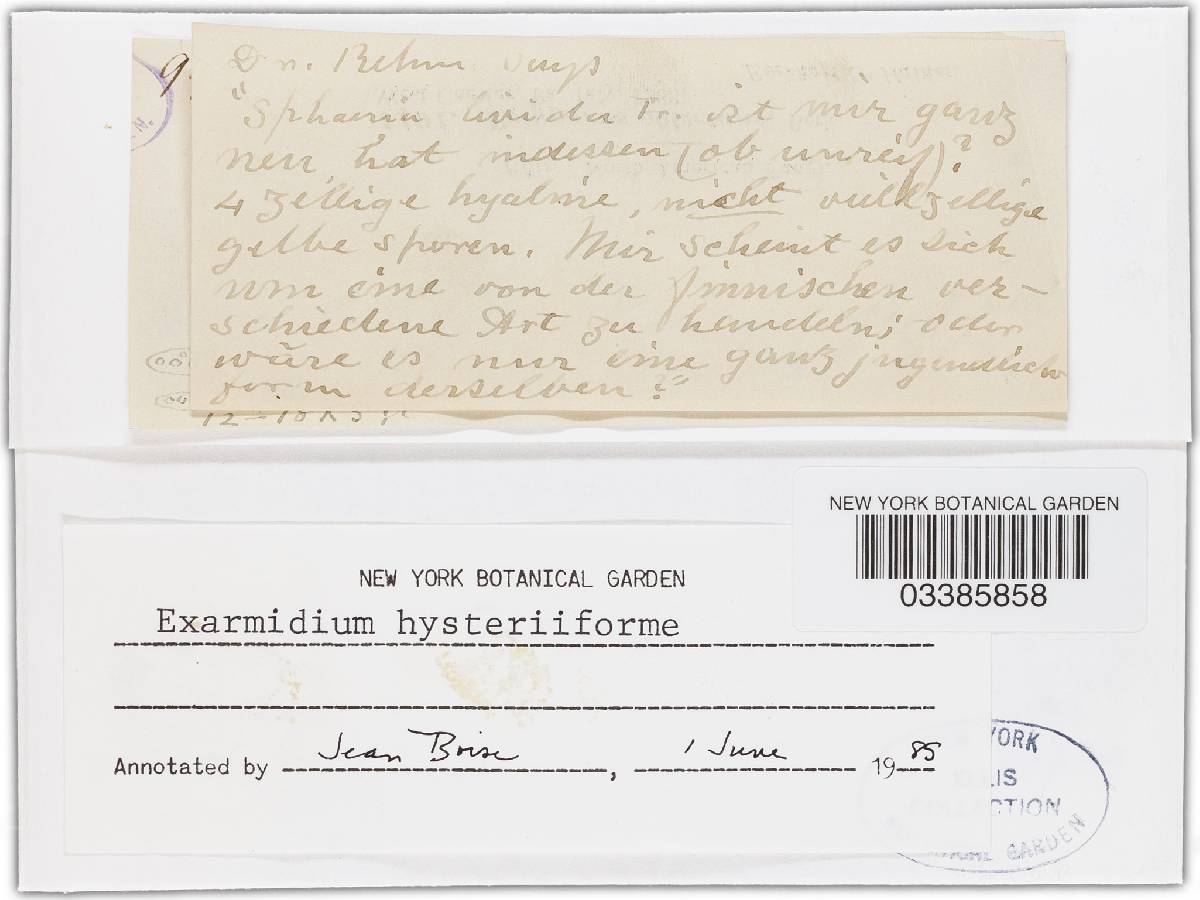 Dr. Rehm says
"Sphaeria livida Fr. ist mir ganz
neu, hat indessen (ob unreif)?
4 zellige hyaline, nicht vielzellige
gelbe sporen. Mir scheint es sich
um eine von der finnischen ver-
schiedene Art zu handeln; oder
wäre es nur eine ganz jugendliche
form derselben?"
NEW YORK BOTANICAL GARDEN
03385858
NEW YORK BOTANICAL GARDEN
Exarmidium hysteriiforme
Annotated by Jean Boise, 1 June 1985
YORK
LIS
COLLECTION
GARDEN